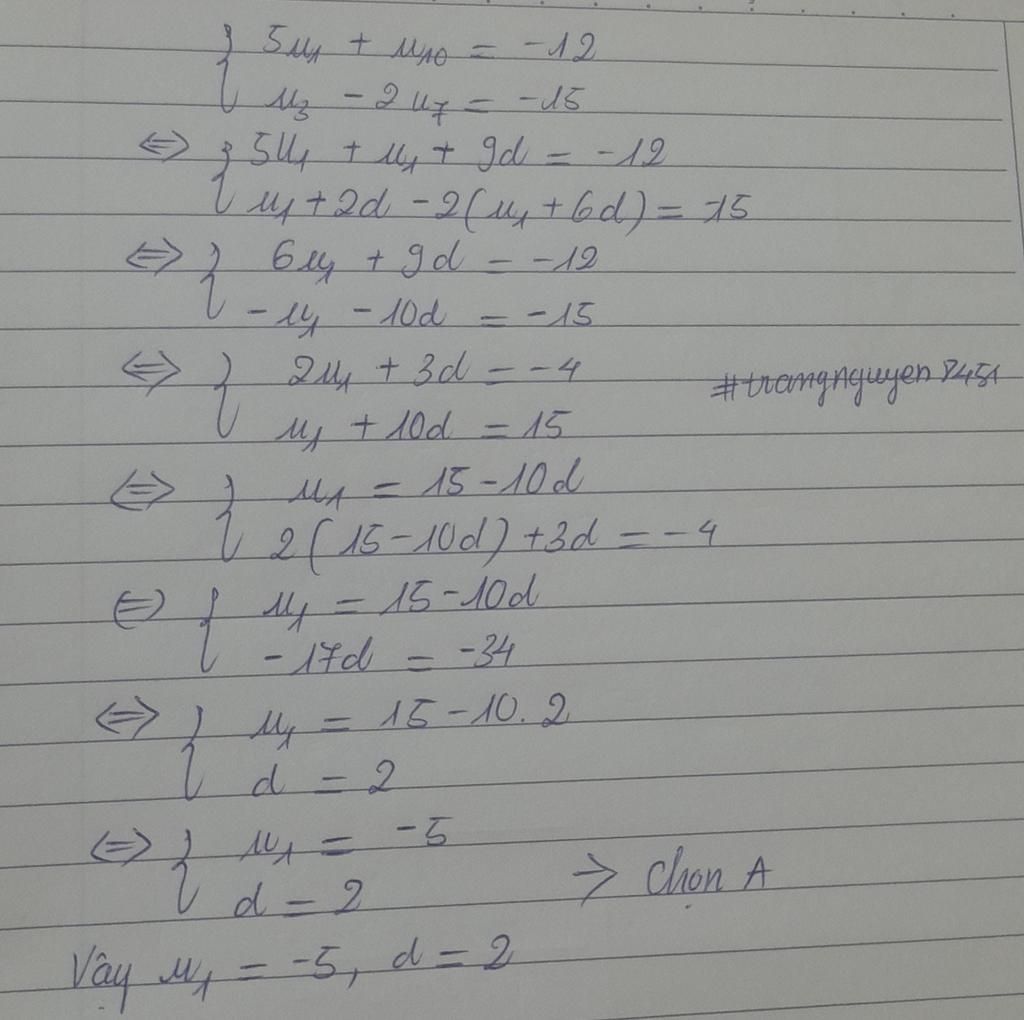 { 5u₁ + u₁₀ = -12
u₃ - 2u₇ = -15
⇔ { 5u₁ + u₁ + 9d = -12
u₁ + 2d - 2(u₁ + 6d) = -15
⇔ { 6u₁ + 9d = -12
-u₁ - 10d = -15
⇔ { 2u₁ + 3d = -4
#trangnguyen8451
u₁ + 10d = 15
⇔ { u₁ = 15 - 10d
2(15 - 10d) + 3d = -4
⇔ { u₁ = 15 - 10d
-17d = -34
⇔ { u₁ = 15 - 10.2
d = 2
⇔ { u₁ = -5
d = 2 → Chọn A
Vậy u₁ = -5, d = 2